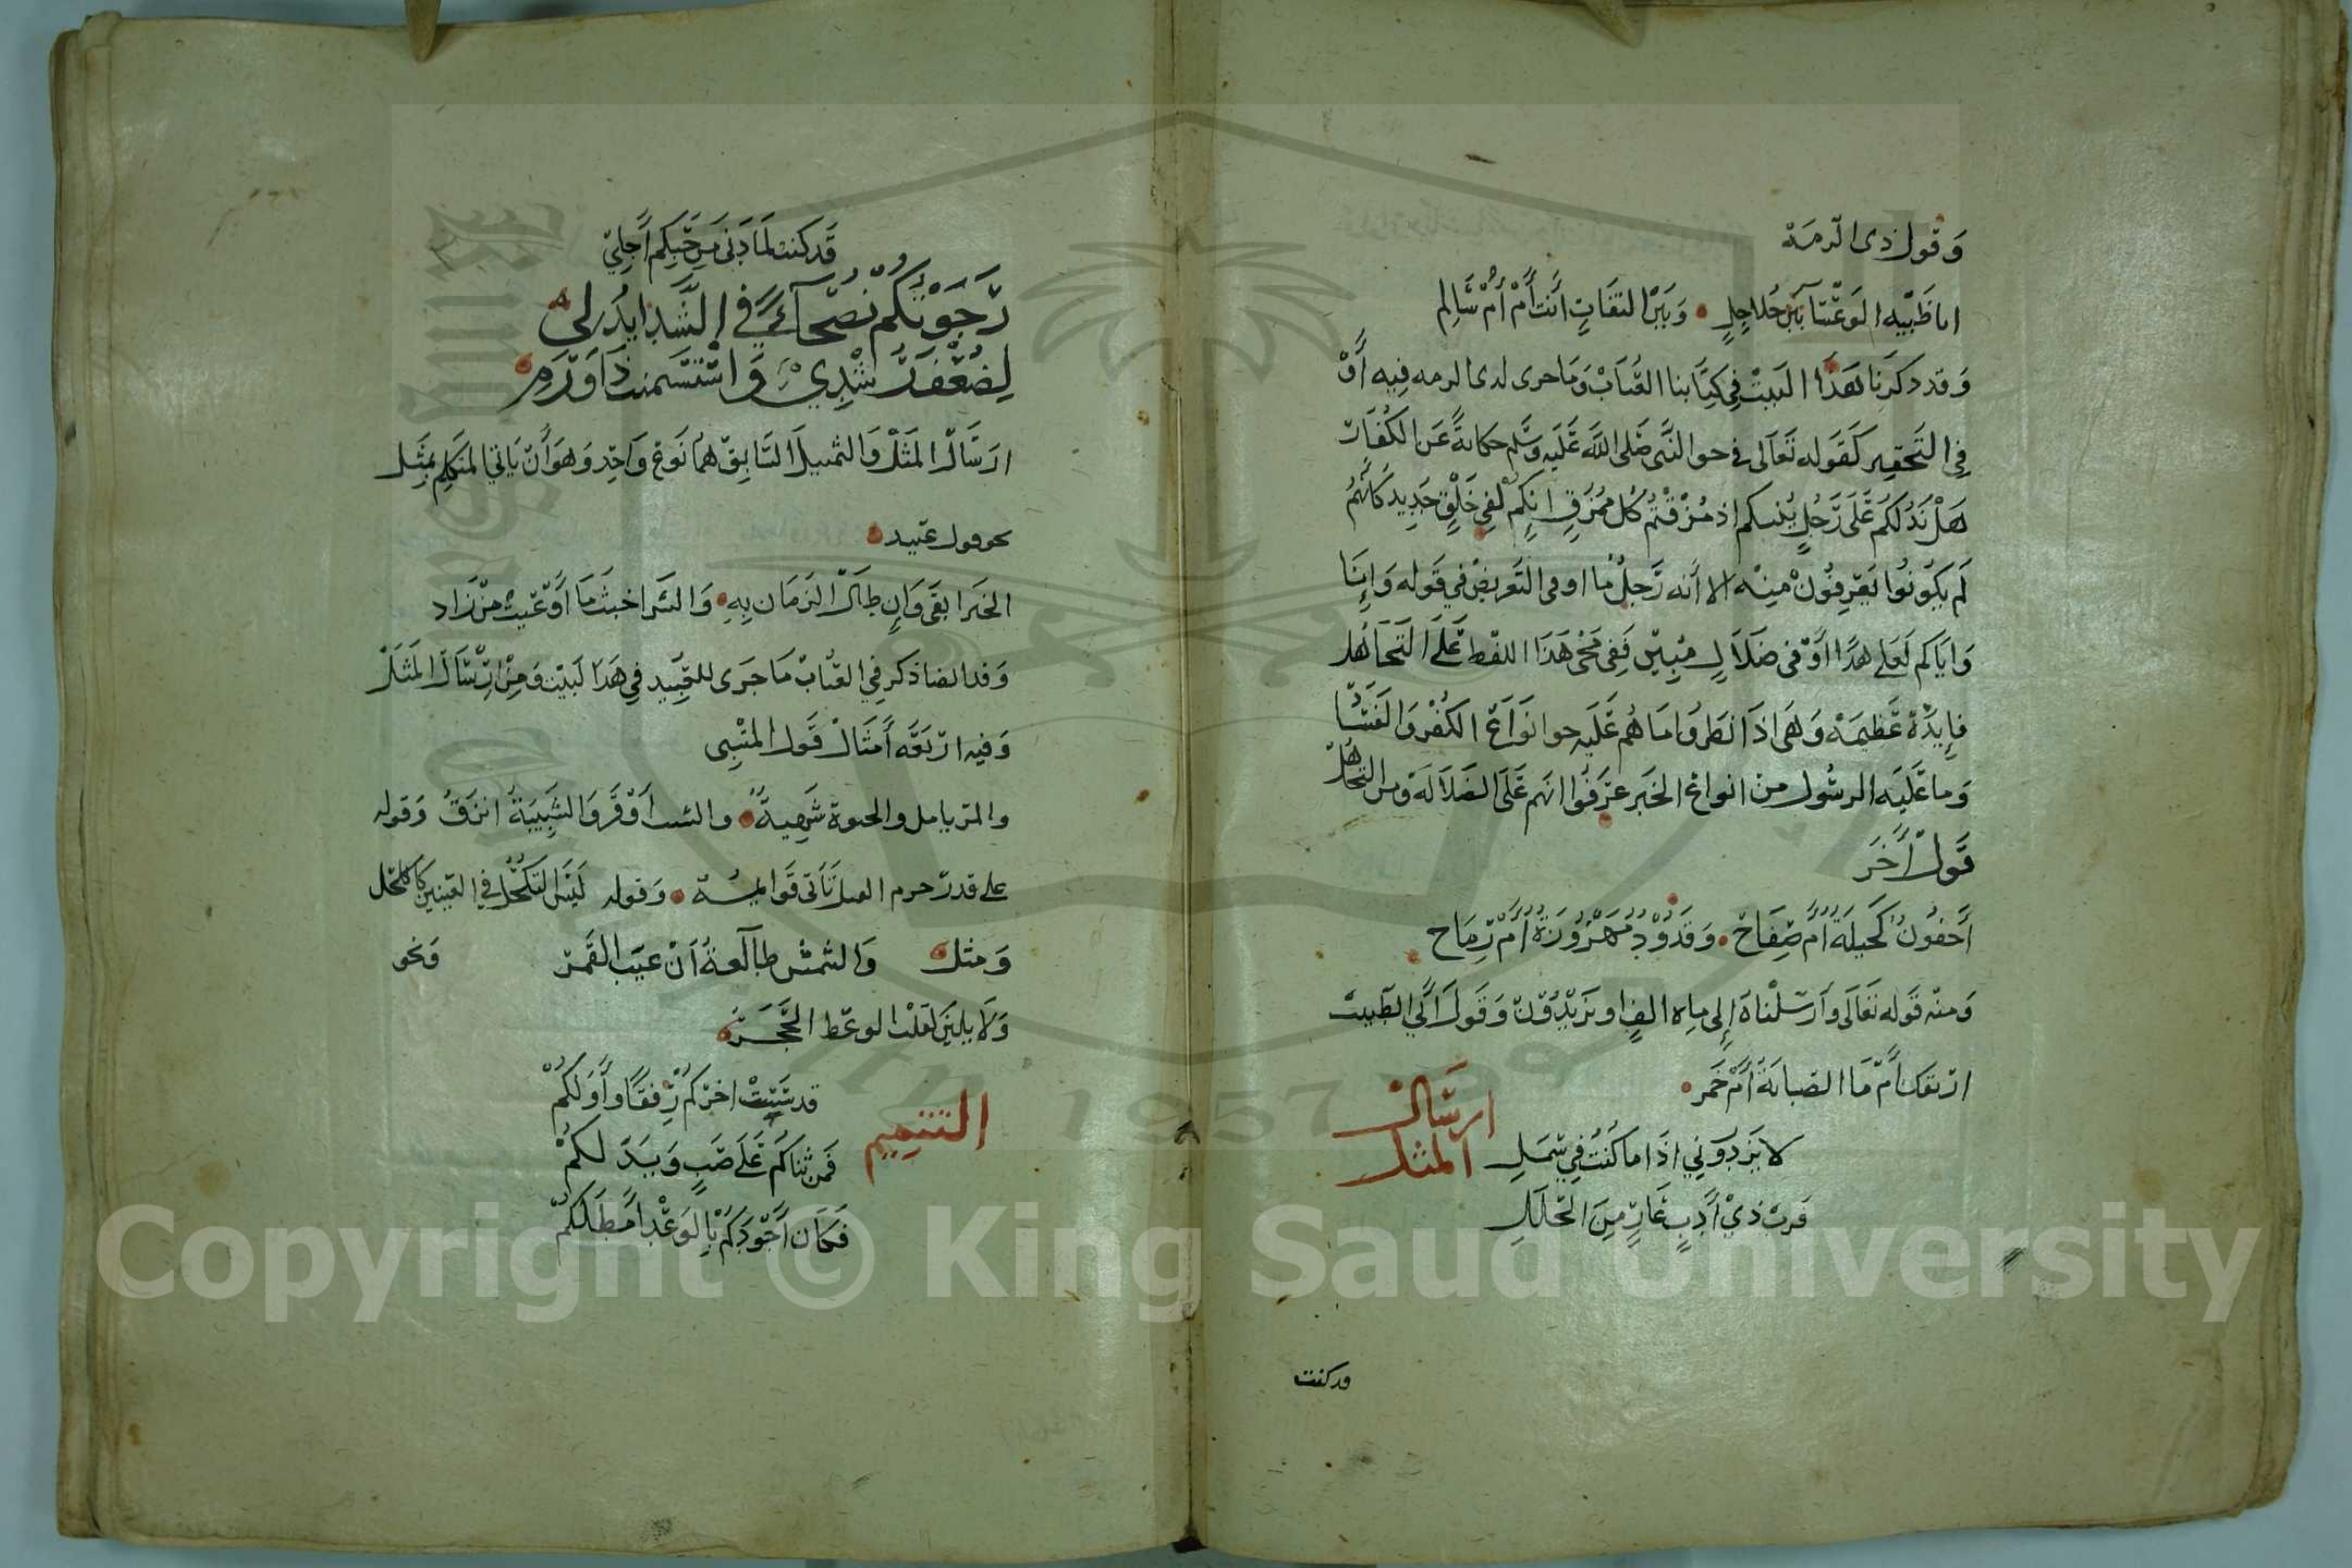 وَقول ذى الرمَة
اياظَبْيَه الوَعْسَا بَيْنَ جُلاجِلٍ • وَبَيْنَ التقَاتٍ أَنْت أَمْ أُمْ سَالِم
وَقد ذكَرنَا هَذَا البَيْت فِي كِتَابنا العُبَابْ وَمَا جرى لدى الرمه فِيه أَوْ
فِي التَحقِير كَقَوله تَعَالَى فى حو النَّبى صَلى اللَّه عَلَيه وَسَلم حكايةً عَن الكُفَارْ
هَلْ نَدُلكُمْ عَلَى رَجُلٍ يُنبيكم اذ مُزقْتُم كُل مُمَزقٍ انِكمْ لَفِى خَلْقٍ جَدِيد كَأنهُمْ
لَم يَكُونُوا يَعْرِفُونْ مِنْه الا أَنه رَجلُ مُا اوفى التَعريضْ في قَوله وَإِنَا
وَايَاكم لَعَلى هدًا أَوْ فى ضَلَالٍ مُبِينْ فَفِى مَجْى هَذَا اللفظ عَلَى التَجَاهُل
فايِدَةْ عَظِيمَه وَهى اذَا نظَرُوا مَا هُم عَلَيه حوانوَاعْ الكُفْر وَالفَسَّا
وَمَا عَلَيَه الرسُول من انواعْ الخَير عَرَفُوا انَهم عَلَى الضَلَالَة وَمن التجَاهُل
قَوْل أَخَر
أَجفُونُ كَحِيلَةُ أُمَّ صِفَاحْ • وَقدُوْدُ مَهْزُوزَةُ أَمْ رِمَاح
وَمنْه قَوله تَعَالَى وَأَرْسَلْنَاهَ إِلَى مايه الفٍ او يَزيْدُوْنْ وَقَوْل أَبِي الطَيبْ
ارْيقك أَمْ مَا الغمامَة أَمْ خَمر •
ارسَال المثل
لا يَزدرونِي اذَا ما كُنتُ فِي سَمَلٍ
فَربْ ذِيْ أَدِبٍ عَارٍ مِنَ الحُلَلِ
قد كنت
قَد كنت لمَا دَنى مِن حَيِكم أَجلِي
رَجَوْتكُمْ نُصَحَآءً فِي الشَدايدْ لى
لِضُعْفِ رُشْدِيْ وَاسْتَسمنت ذَا وَرَمِ
ارسَالْ المَثَلْ وَالتمثيل السَابِقْ هُمَا نَوعْ وَاحِد وَهوَ أَنْ يَاتي المتَكلِم بِمَثَل
نحو قول عَبيد
الخَير ابقَى وَإِن طَالْ الزَمَان بِهِ • وَالشَر اخبثُ مَا أَوْعَيت مِنْ زَاد
وَقد ايضا ذكر فِي العُبَابْ مَا جَرَى للعَبِيد فِي هَذَ البَيْت وَمِنْ ارْسَالْ المَثَلْ
وَفيه ارْبَعَه أَمثَالْ قَول المتنبى
والمرَ يامل والحيوة شَهِيةُ • والشيب أَوْقَرُ وَالشَبِيبَةُ انزَقُ وَقوله
على قدرْ جرم الفيل تَأتى قَوايمُه • وَقوله لَيْسَ التَكحُّل فِي العَينين كَا لكحَل
وَمثله وَالشَمسْ طَالعةُ أنْ غيّب القَمَرْ وَنحو
وَلَا يلينَ لقَلْب الوعظ الحَجَرُ
التتميم
قد شَبِبتْ اخِركُمْ رِفقًا وَأَوَلكُمْ
فَمن ثنَاكُم عَلَى صَبٍ وَبَدَّ لكمْ
فَكَان أَجْوَدكُمْ بِالوَعْد أَمطَلكُمْ
Copyright © King Saud University
1957